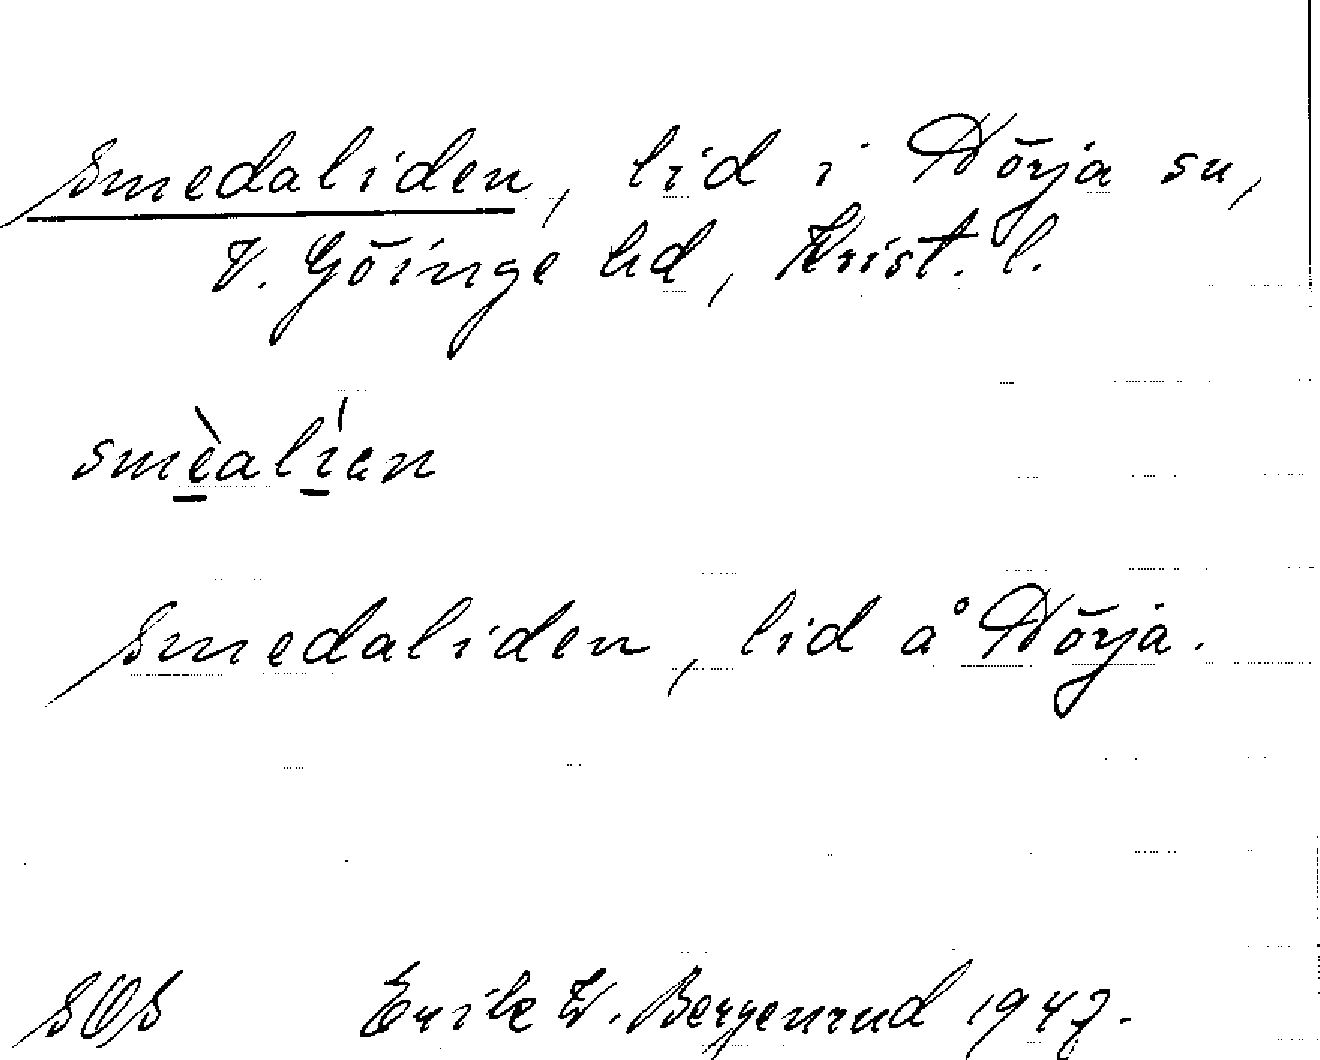 Smedaliden, lid i Nörja sn,
V. Göinge hd, Krist. l.
smèalíen
Smedaliden, lid å Nörja.
SOS Erik W. Bergenrud 1947.